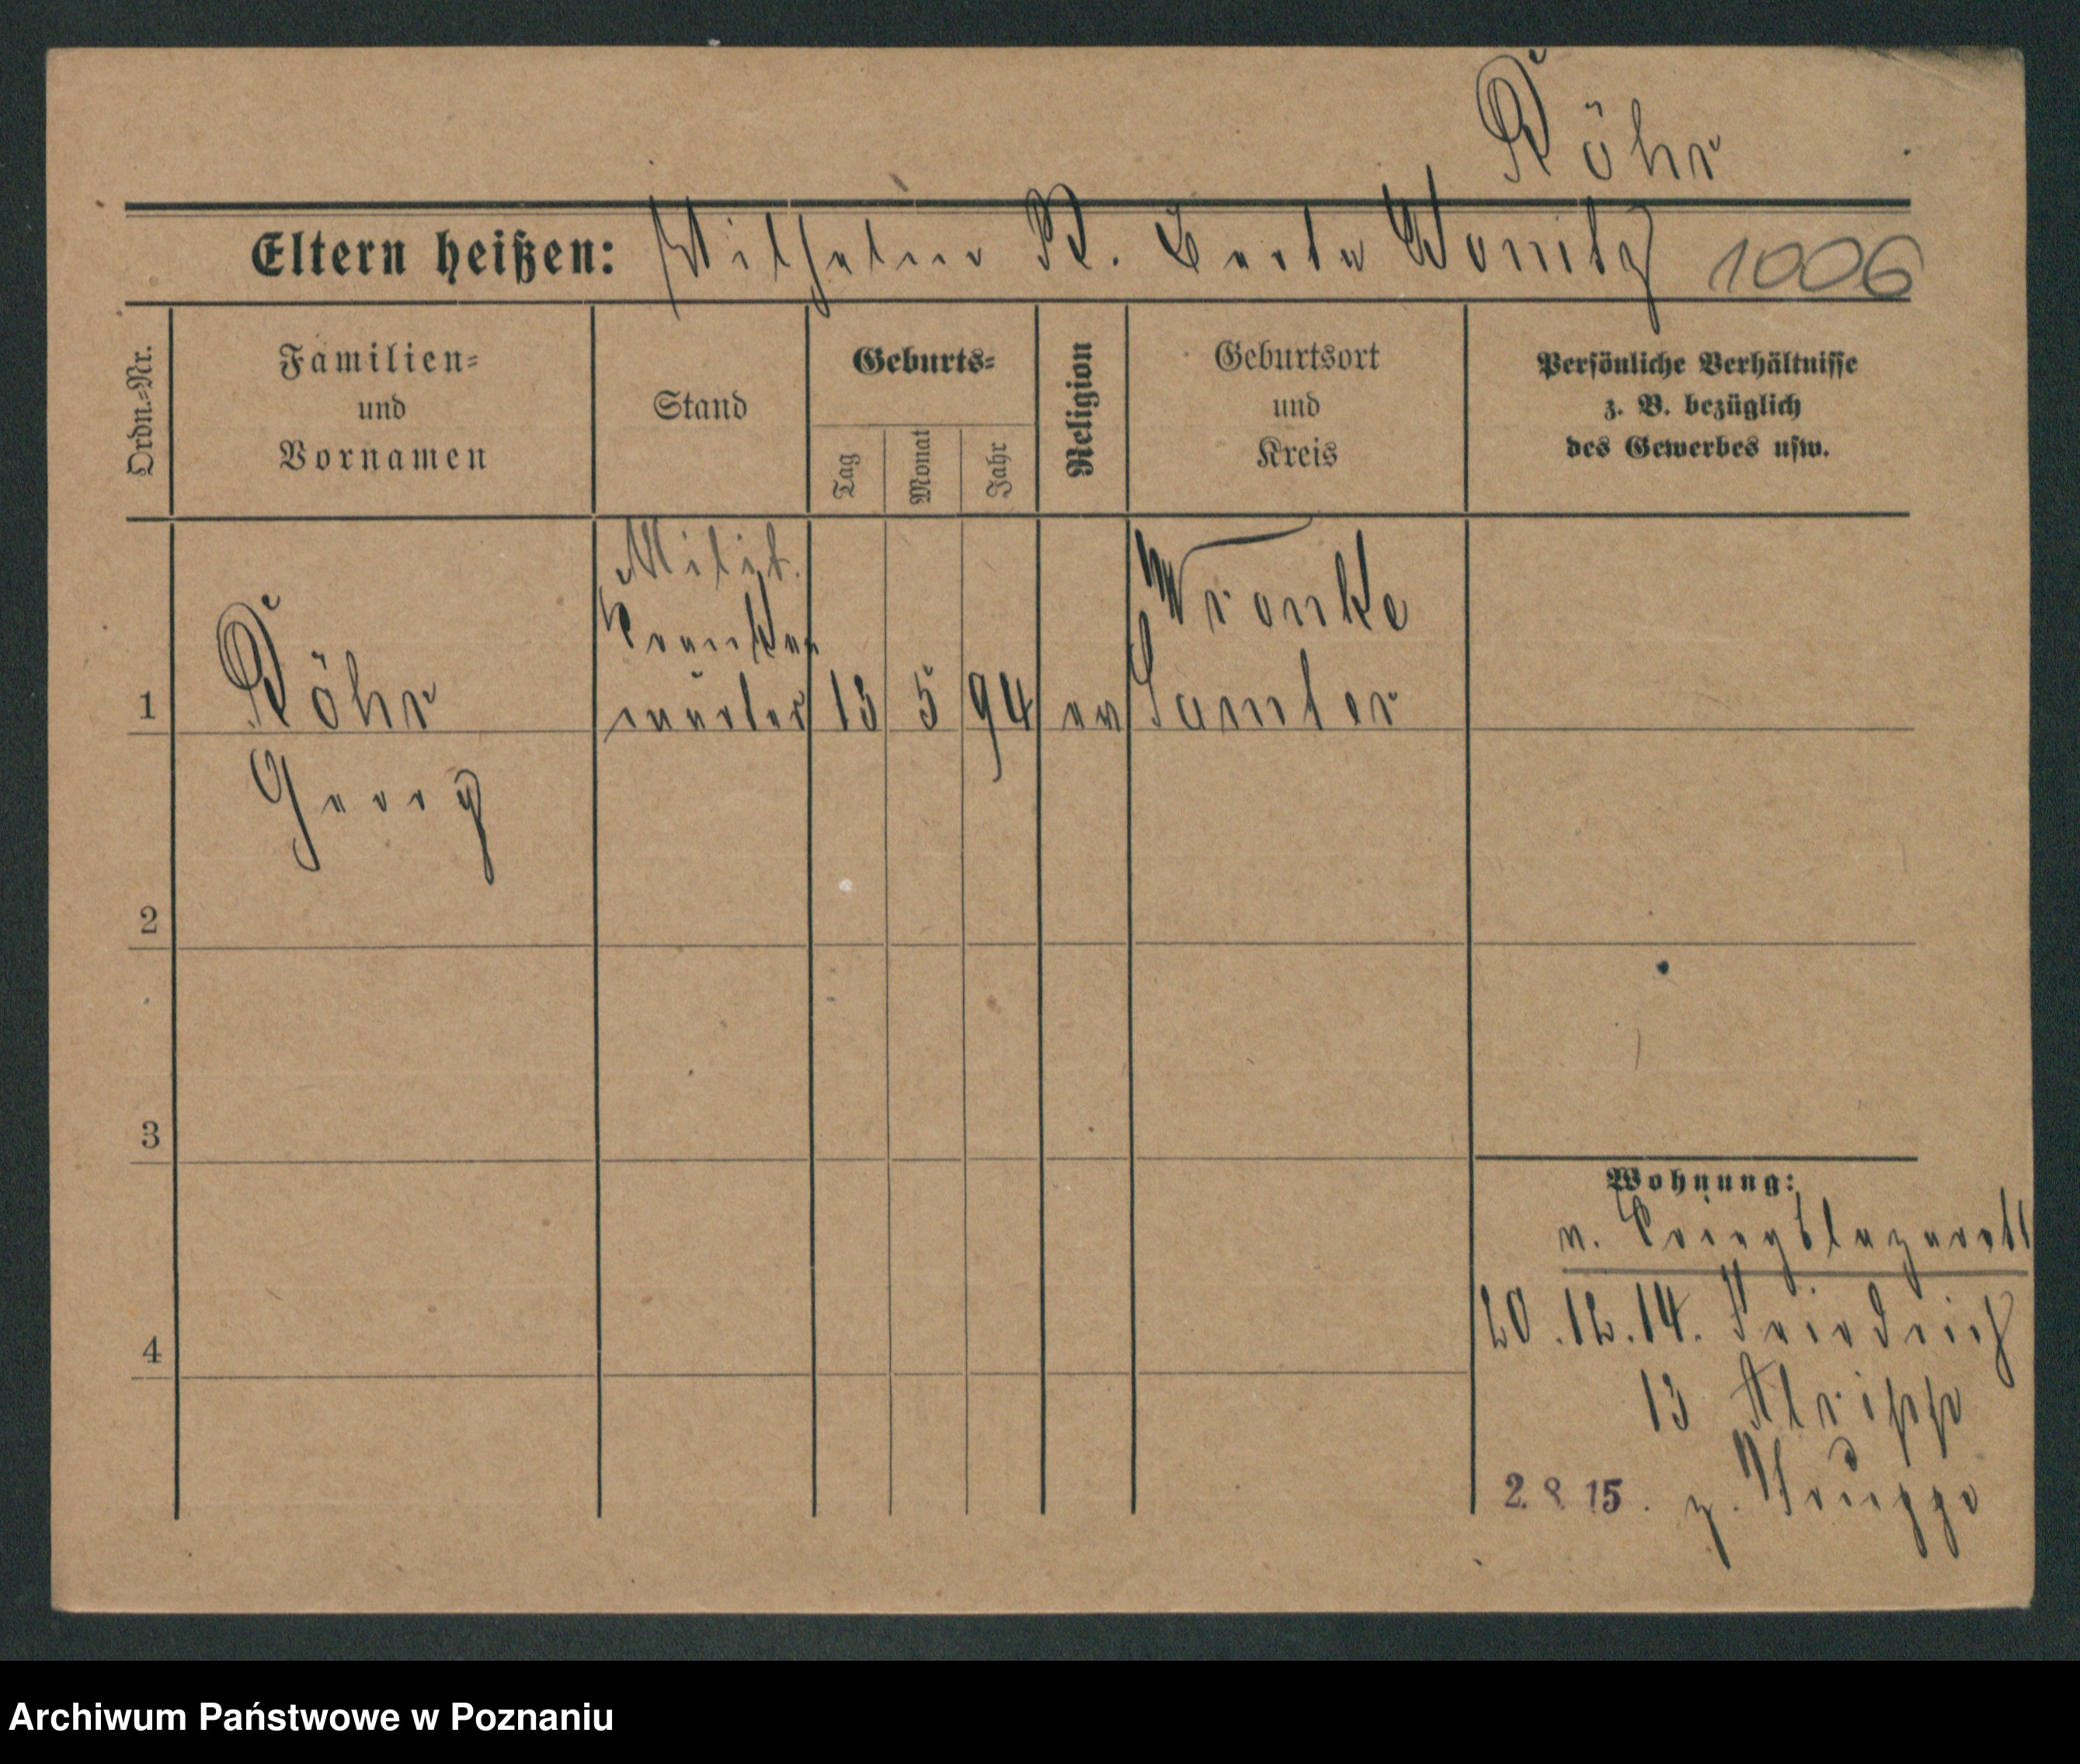 Röhr
Eltern heißen: Wilhelm R. Berta Wonitz 1006
Ordn.-Nr.
Familien-
und
Vornamen
Stand
Geburts-
Tag
Monat
Jahr
Religion
Geburtsort
und
Kreis
Persönliche Verhältnisse
z. B. bezüglich
des Gewerbes usw.
Milit.
Kranken
wärter
1 Röhr
Georg
13 5 94 ev
Wronke
Samter
2
3
4
Wohnung:
v. Kriegslazarett
20.12.14. Friedrich
13
2. 8. 15. z. Truppe
Archiwum Państwowe w Poznaniu